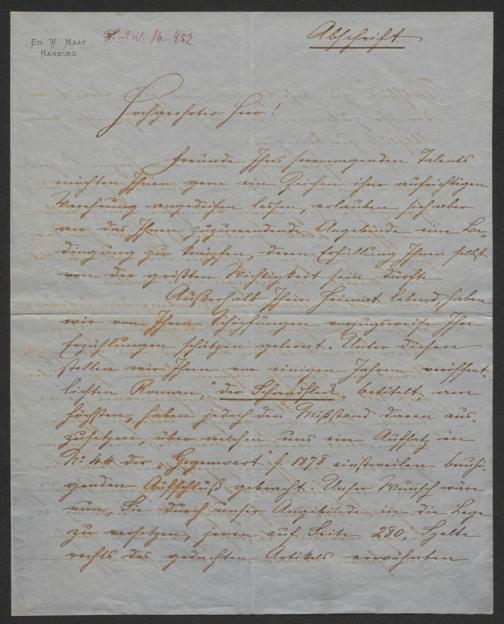 ED. W. MAAS
HAMBURG
H.I.N. 16.452
Abschrift
Hochgeehrter Herr!
Freunde Ihres hervorragenden Talents
möchten Ihnen gern ein Zeichen ihrer aufrichtigen
Verehrung angedeihen lassen, erlauben sich aber
an das Ihnen zuzuwendende Angebinde eine Be-
dingung zu knüpfen, deren Erfüllung Ihnen selbst
von der größten Wichtigkeit sein dürfte.
Außerhalb Ihrer Heimat lebend, haben
wir von Ihren Schöpfungen vorzugsweise Ihre
Erzählungen schätzen gelernt. Unter diesen
stellen wir Ihren vor einigen Jahren veröffent-
lichten Roman, "der Schandfleck" betitelt am
höchsten, haben jedoch den Mißstand daran aus-
zusetzen, über welchen uns ein Aufsatz in
No 44 der "Gegenwart" f. 1878 einstweilen beruhi-
genden Aufschluß gebracht. Unser Wunsch wäre
nun, Sie durch unser Angebinde in die Lage
zu versetzen, jenen auf Seite 280, Spalte
rechts des gedachten Artikels erwähnten